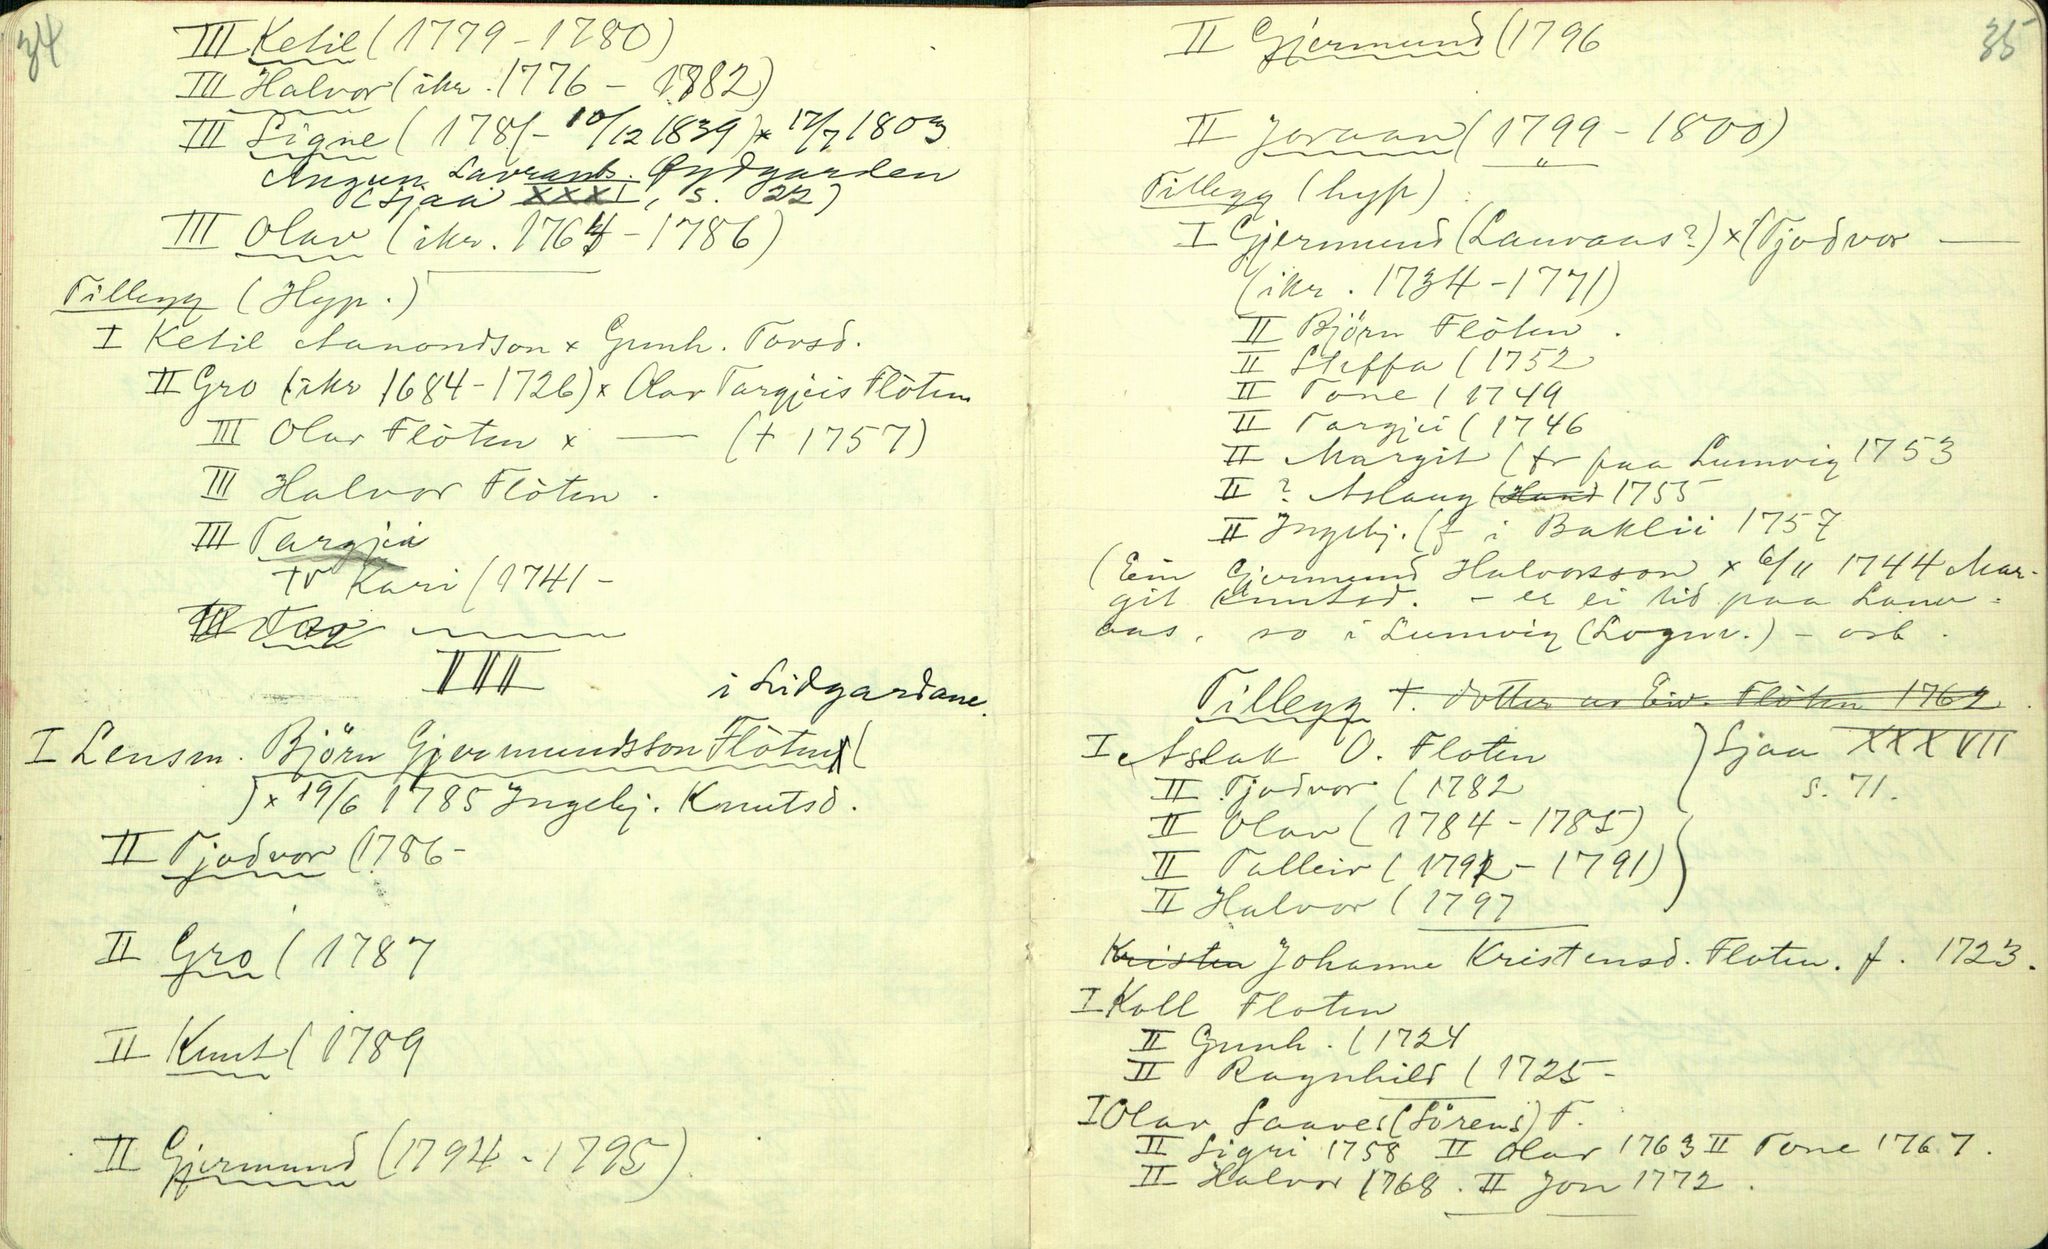 34
III Ketil (1779 - 1780)
III Halvor (ikr. 1776 - 1882)
III Signe (1781 - 10/12 1839) x 17/7 1803
Angun. Lavrants. Øydgarden
(sjaa XXXI, s. 22)
III Olav (ikr. 1764 - 1786)
Tillegg (Hyp.)
I Ketil Aamondson x Gunh. Torsd.
II Gro (ikr 1684 - 1726) x Olav Targjeis Flöten
III Olav Flöten x — († 1757)
III Halvor Flöten.
III Targjei
IV Kari (1741 -
III Tog
VII
i Lidgardane.
I Lensm. Björn Gjermundsson Flöten (
) x 19/6 1785 Ingebj. Knutsd.
II Tjodvor (1786 -
II Gro (1787
II Knut (1789
II Gjermund (1794 - 1795)
35
II Gjermund (1796
II Joraan (1799 - 1800)
Tillegg (hyp) :
I Gjermund (Lauvaas?) x (Tjodvor —
(ikr. 1734 - 1771)
II Björn Flöten.
II Steffa (1752
II Tone (1749
II Targjei (1746
II Margit (fr paa Lumvig 1753
II ? Aslaug (Hand 1755
II Ingebj. (f i Baklii 1757
(Ein Gjermund Halvorsson x 6/11 1744 Mar-
git Knutsd. - er ei tid paa Lauv-
aas, so i Lumvig (Lognv.) - osb.
Tillegg †. dotter av Eiv. Flöten 1762.
I Aslak O. Floten ) Sjaa XXXVII
II Tjodvor (1782 s. 71.
II Olav (1784 - 1785)
II Talleiv (1792 - 1791)
II Halvor (1797
Kristen Johanne Kristensd. Floten. f. 1723.
I Koll Floten
II Gunh. (1724
II Ragnhild (1725 -
I Olav Saaves (Sörens) F.
II Sigri 1758 II Olav 1763 II Tone 1767.
II Halvor 1768. II Jon 1772.